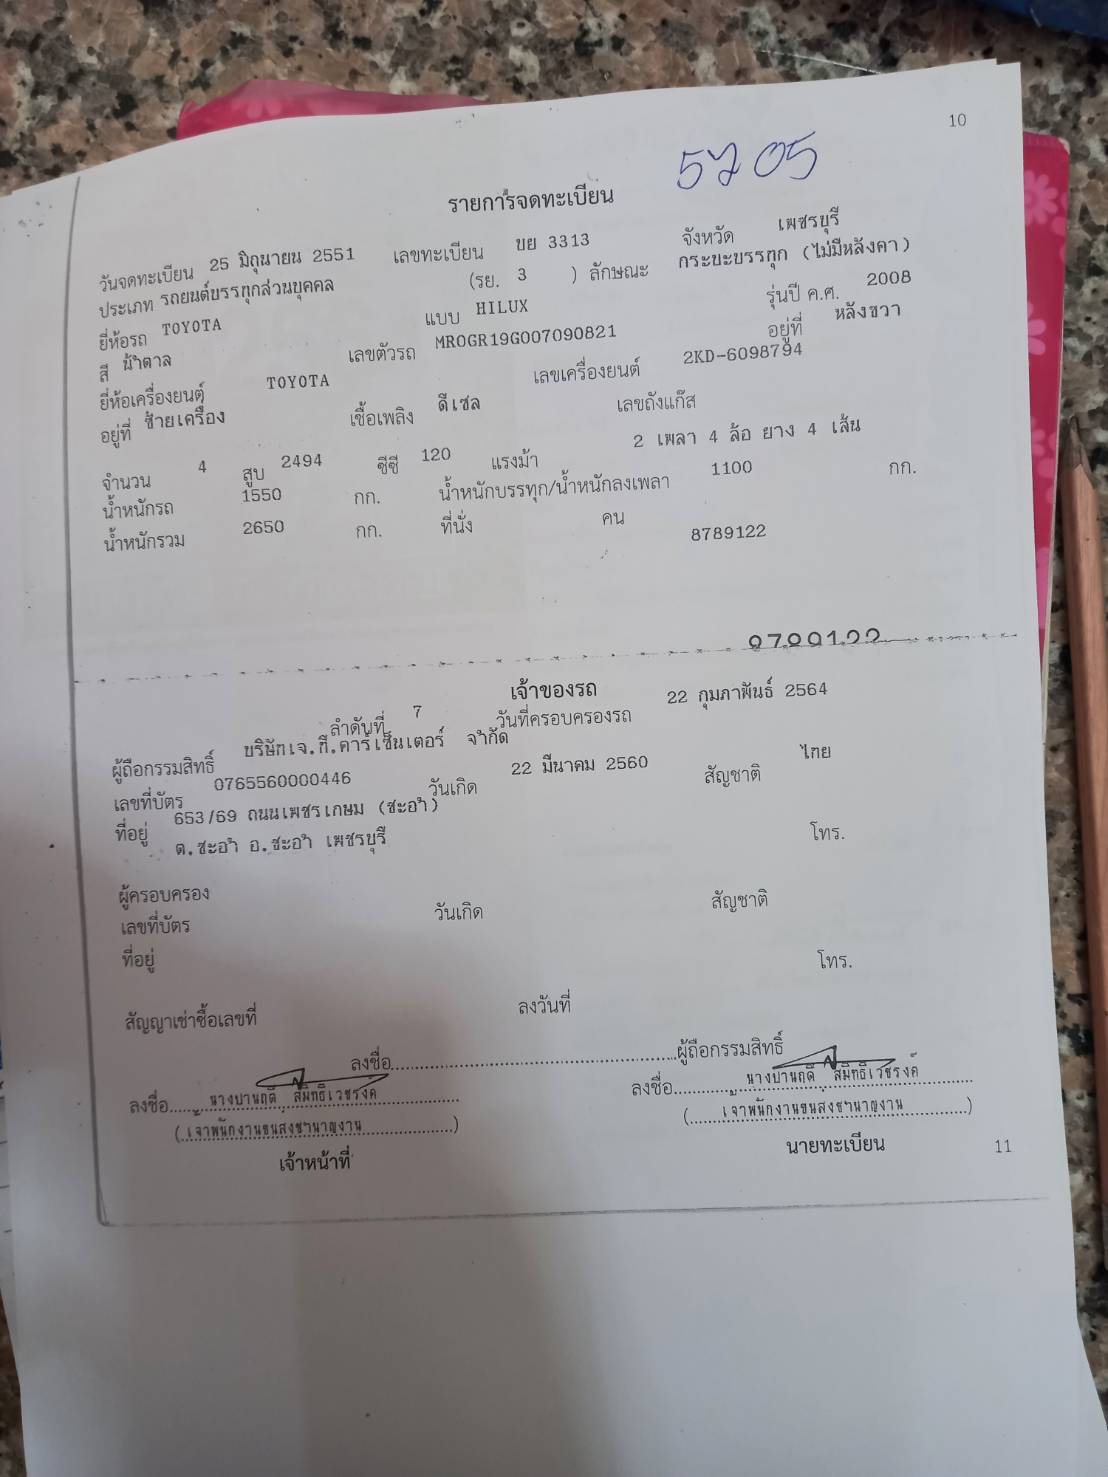 10
5205
รายการจดทะเบียน
วันจดทะเบียน 25 มิถุนายน 2551 เลขทะเบียน บย 3313 จังหวัด เพชรบุรี
ประเภท รถยนต์บรรทุกส่วนบุคคล (รย. 3 ) ลักษณะ กระบะบรรทุก (ไม่มีหลังคา)
ยี่ห้อรถ TOYOTA แบบ HILUX รุ่นปี ค.ศ. 2008
สี น้ำตาล เลขตัวรถ MROGR19G007090821 อยู่ที่ หลังขวา
ยี่ห้อเครื่องยนต์ TOYOTA เลขเครื่องยนต์ 2KD-6098794
อยู่ที่ ซ้ายเครื่อง เชื้อเพลิง ดีเซล เลขถังแก๊ส
จำนวน 4 สูบ 2494 ซีซี 120 แรงม้า 2 เพลา 4 ล้อ ยาง 4 เส้น
น้ำหนักรถ 1550 กก. น้ำหนักบรรทุก/น้ำหนักลงเพลา 1100 กก.
น้ำหนักรวม 2650 กก. ที่นั่ง คน
8789122
8789122
เจ้าของรถ
ลำดับที่ 7 วันที่ครอบครองรถ 22 กุมภาพันธ์ 2564
ผู้ถือกรรมสิทธิ์ บริษัทเจ.ที.คาร์เซ็นเตอร์ จำกัด
เลขที่บัตร 0765560000446 วันเกิด 22 มีนาคม 2560 สัญชาติ ไทย
ที่อยู่ 653/69 ถนนเพชรเกษม (ชะอำ)
ต.ชะอำ อ.ชะอำ เพชรบุรี โทร.
ผู้ครอบครอง
เลขที่บัตร วันเกิด สัญชาติ
ที่อยู่ โทร.
สัญญาเช่าซื้อเลขที่ ลงวันที่
ลงชื่อ ผู้ถือกรรมสิทธิ์
ลงชื่อ นางปานฤดี สมิทธิเวชรงค์ ลงชื่อ นางปานฤดี สมิทธิเวชรงค์
(เจ้าพนักงานขนส่งชำนาญงาน) (เจ้าพนักงานขนส่งชำนาญงาน)
เจ้าหน้าที่ นายทะเบียน
11